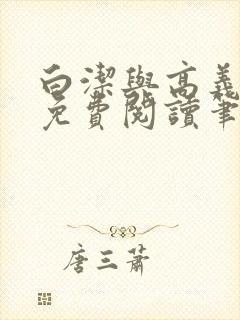 白潔與高義
免費閱讀筆
唐三蕭